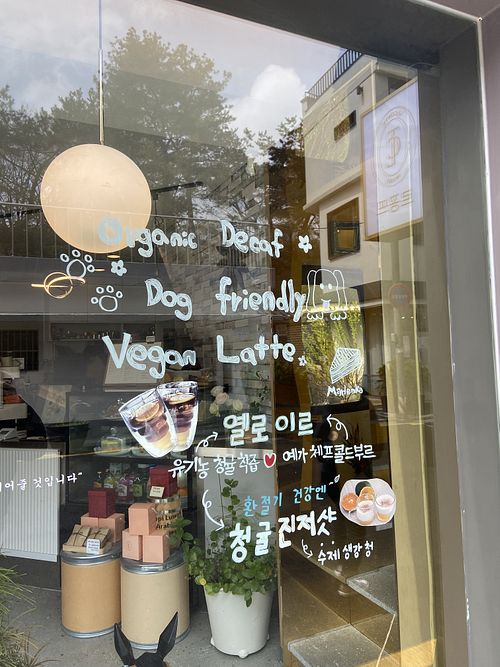 Organic Decaf
Dog friendly
Vegan Latte
Matilda
옐로 이르
유기농 청귤 착즙 예가체프콜드부르
어줄 것입니다"
환절기 건강엔
청귤진저샷
수제 생강청